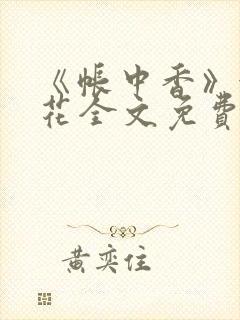 《帐中香》
花全文免費
黄奕住